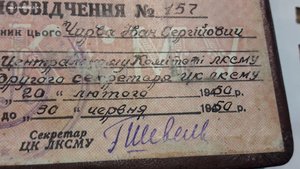 ПОСВІДЧЕННЯ № 157
ник цього Чирва Іван Сергійович
Центральному Комітеті ЛКСМУ
другого секретаря ЦК ЛКСМУ
з „20" лютого 1950 ро.
до „30" червня 1950 ро.
Секретар
ЦК ЛКСМУ